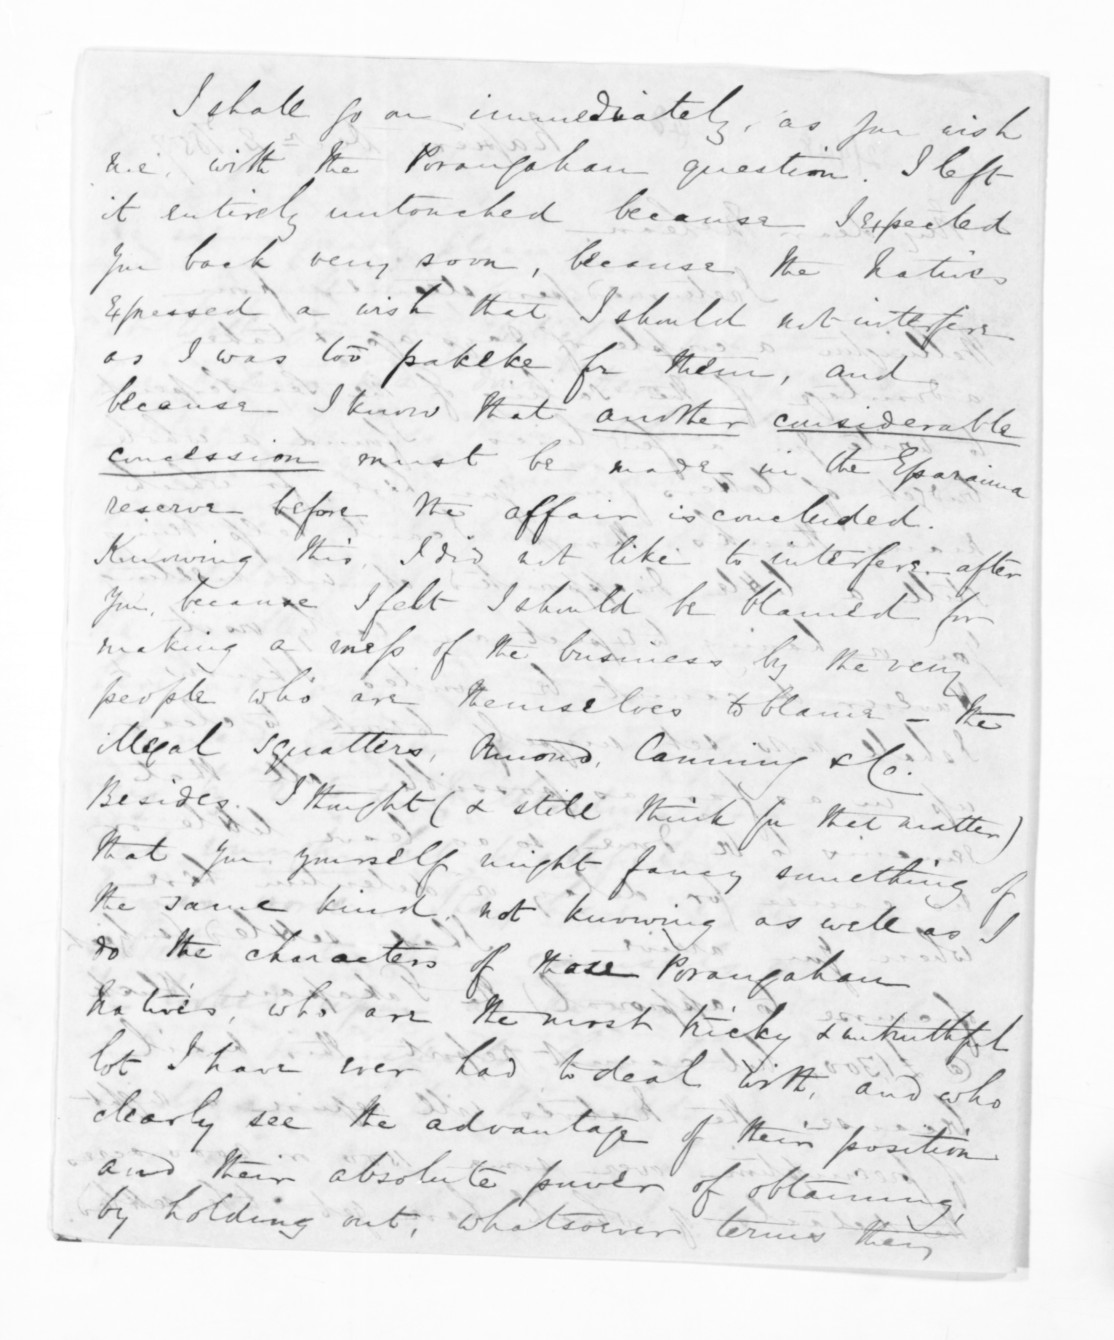 I shall go on immediately, as you wish
me, with the Porangahau question. I left
it entirely untouched because I expected
you back very soon, because the Natives
expressed a wish that I should not interfere
as I was too pakeke for them, and
because I know that another considerable
concession must be made in the Eparaima
reserve before the affair is concluded.
Knowing this, I did not like to interfere after
you, because I felt I should be blamed for
making a mess of the business by the very
people who are themselves to blame – the
illegal squatters, Ormond, Canning & Co.
Besides. I thought (& still think for that matter)
that you yourself might fancy something of
the same kind, not knowing as well as I
do the characters of those Porangahau
Natives, who are the most tricky & untruthful
lot I have ever had to deal with, and who
clearly see the advantage of their position
and their absolute power of obtaining,
by holding out, whatsoever terms they